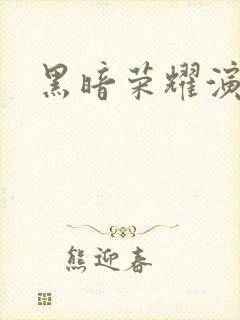 黑暗荣耀演
熊迎春